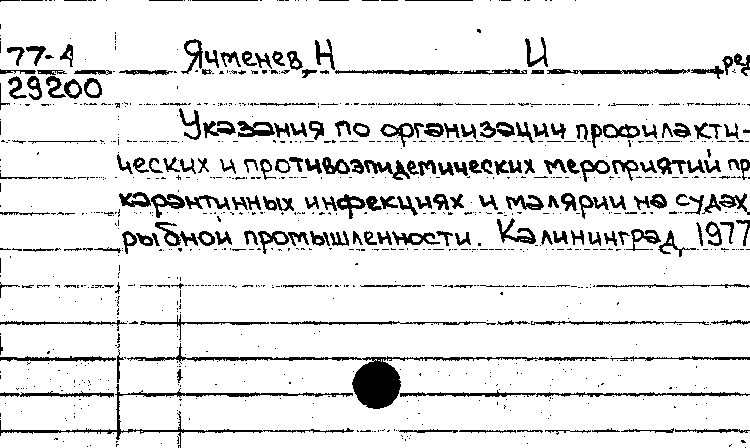 77-4 Ячменев, Н И , ред
29200
Указания по организации профилакти-
ческих и противоэпидемических мероприятий пр
карантинных инфекциях и малярии на судах
рыбной промышленности. Калининград, 1977